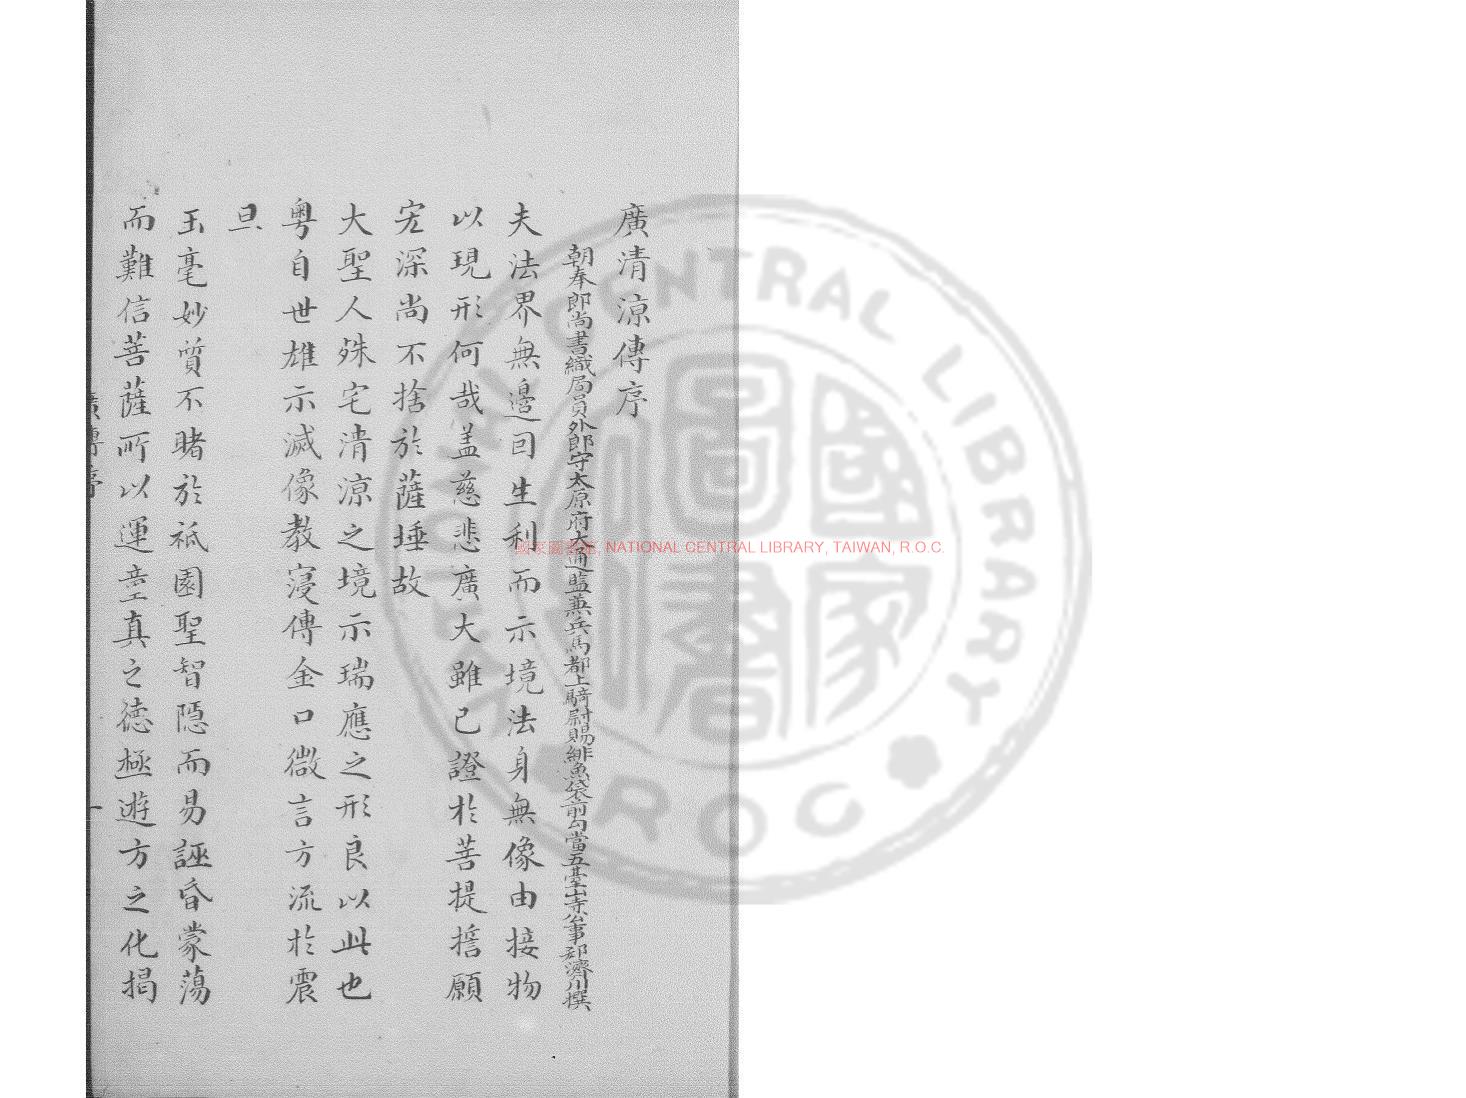 廣清涼傳序
朝奉郎尚書職局員外郎守太原府大通監兼兵馬都上騎尉賜緋魚袋前勾當五臺山寺公事郄濟川撰
夫法界無邊回生利而示境法身無像由接物
以現形何哉盖慈悲廣大雖已證於菩提誓願
宏深尚不捨於薩埵故
大聖人殊宅清涼之境示瑞應之形良以此也
粵自世雄示滅像教寖傳金口微言方流於震
旦
玉毫妙質不睹於祇園聖智隱而易誣昏蒙蕩
而難信菩薩所以運童真之德極遊方之化揭
廣傳序
一
國家圖書館, NATIONAL CENTRAL LIBRARY, TAIWAN, R.O.C.
NATIONAL CENTRAL LIBRARY
ROC
國家圖書